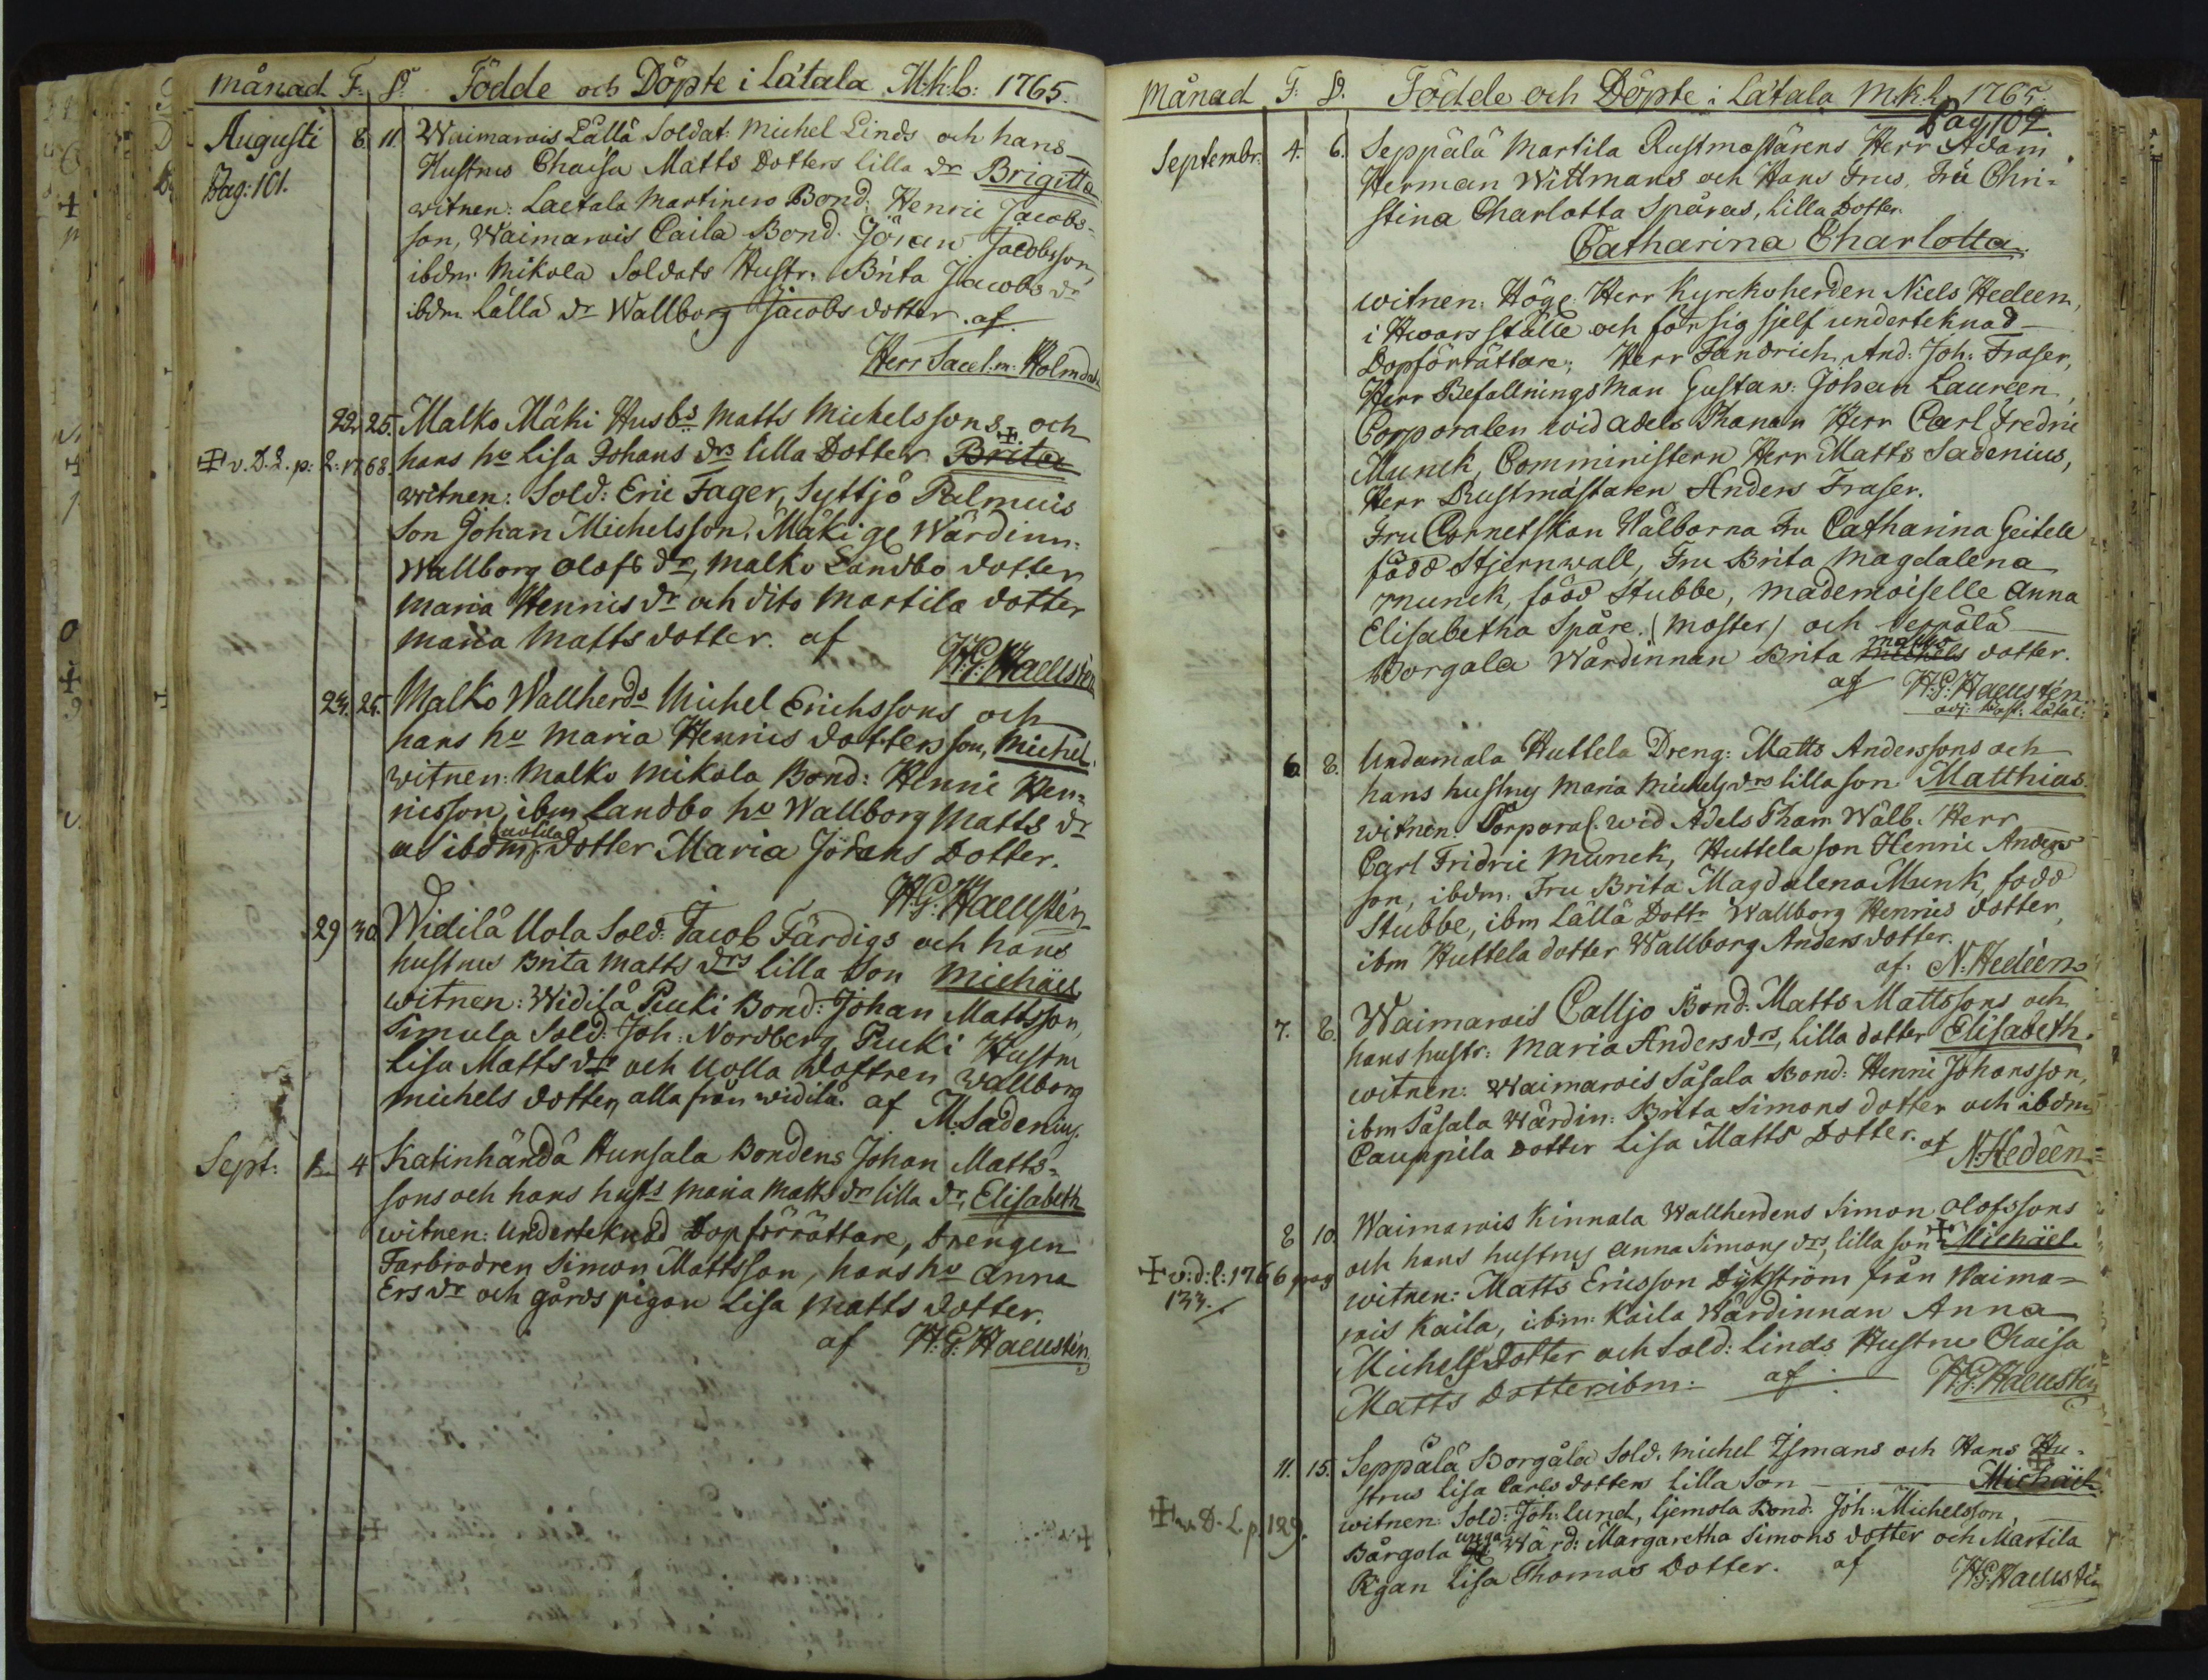 Månad F. D. Födde och Döpte i Låtala M.k.b: 1765.
Augusti 8. 11. Waimarois Lållå Soldat: Michel Linds och hans
Pag: 101. Hustrus Chaisa Matts Dotters lilla Dr Brigitta
witnen: Laetala Martinero Bond: Henric Jacobs=
son, Waimarois Caila Bond. Göran Jacobsson,
ibdm. Mikola Soldats Hustr. Brita Jacobs dr
ibdm. Lållå dr Wallborg Jacobs dotter. af
Herr Sacel.m. Holmdahl
22. 25. Malko Mäki Husbs Matts Michelssons och
✝ v. D. L. p: 2: 1768. hans ho Lisa Johans drs lilla Dotter ✝ Brita
witnen: Sold: Eric Fager, Syttjö Palmuis
Son Johan Michelsson, Mäki ge Wärdinn:
Wallborg Olofs dr, Malko Landbo dotter
Maria Hennis dr och dito Martila dotter
Maria Matts dotter. af
H.G. Haeustén
24. 25. Malko Wallherds Michel Erichssons och
hans ho Maria Henris dotters son, Michel.
witnen: Malko Mikola Bond: Henric Hen=
ricsson, ibm Landbo ho Wallborg Matts dr
ibdm dotter Maria Johans Dotter.
H.G. Haeustén
29 30. Widilå Uola Sold: Jacob Färdigs och hans
hustrus Brita Matts drs lilla Son Michäel
witnen: Widilå Puuki Bond: Johan Mattsson,
Simula Sold: Joh: Nordberg, Puuki Hustru
Lisa Matts dr och Uolla Dottren Wallborg
Michels dotter, alla från widilå. af M. Sadenius.
Sept: 1. 4 Katinhändä Hunsala Bondens Johan Matts=
sons och hans husts Maria Matts dr lilla dr, Elisabeth
witnen: Underteknad Dopförrättare, Drengen
Farbrodren Simon Mattsson, hans ho Anna
Ers dr och gårds pigan Lisa Matts dotter.
af H.G. Haeustén.
Månad F. D. Födde och Döpte i Låtala M.k.b. 1765
Pag. 102.
Septembr: 4. 6. Seppälä Martila Rustmästärens Herr Adam
Herman Wittmans och Hans Frus, Fru Chri=
stina Charlotta Spåras, lilla Dotter.
Catharina Charlotta.
witnen: Höge Herr Kyrckoherden Niels Hedeen,
i Hwars ställe och för sig sjelf underteknad
Dopförrättare; Herr Fändrich And: Joh: Fraser,
Herr Befallnings Man Gustaw: Johan Laureen,
Corporalen wid adels Fhanan Herr Carl Fredric
Munck, Comministern Herr Matts Sadenius,
Herr Rustmästaren Anders Fraser.
Fru Cornetskan Wälborna Fru Catharina Geitell
född Stjernwall, Fru Brita Magdalena
Munck, född Stubbe, Mademoiselle Anna
Elisabetha Spåre, (Moster) och Seppälä
Borgala Wärdinnan Brita Matts dotter.
af H.G. Haeustén
adj: Past: Låtal:
6. 8. Undamala Huttela Dreng: Matts Anderssons och
hans hustrus Maria Michels drs lilla son Matthias.
witnen: Corporal. wid Adels Fhan: Wälb. Herr
Carl Fridric Munck, Huttela son Henric Anders=
son, ibdm: Fru Brita Magdalena Munk, född
Stubbe, ibm Lällä Dottr Wallborg Henrics dotter,
ibm Huttela dotter Wallborg Anders dotter.
af: N. Hedéen
7. 8. Waimarois Calljo Bond: Matts Mattssons och
hans hustr: Maria Anders drs, lilla dotter Elisabeth.
witnen: Waimarois Såsala Bond: Henric Johansson,
ibm Såsala Wärdin: Brita Simons dotter och ibdm
Cauppila Dotter Lisa Matts Dotter. af N. Hedéen.
8 10. Waimarois Kinnala Wallherdens Simon Olofssons
och hans hustrus Anna Simons drs, lilla son ✝ Michäel.
✝ v: d: l: 1766 pag 133. witnen: Matts Ericsson Dykström från Waima=
rois Kaila, ibm: Kaila Wärdinnan Anna
Michels Dotter och Sold: Linds Hustru Chaisa
Matts Dotter ibm: af H.G. Haeustén
11. 15. Seppälä Borgåla Sold. Michel Ismans och Hans Hu=
strus Lisa Carls dotters lilla Son ✝ Michäel.
✝ v. D. L. p 129. witnen: Sold: Joh: Lund, Ljemola Bond: Joh: Michelsson,
Bårgola unga Wärd: Margaretha Simons dotter och Martila
Pigan Lisa Thomas Dotter. af H.G. Haeustén